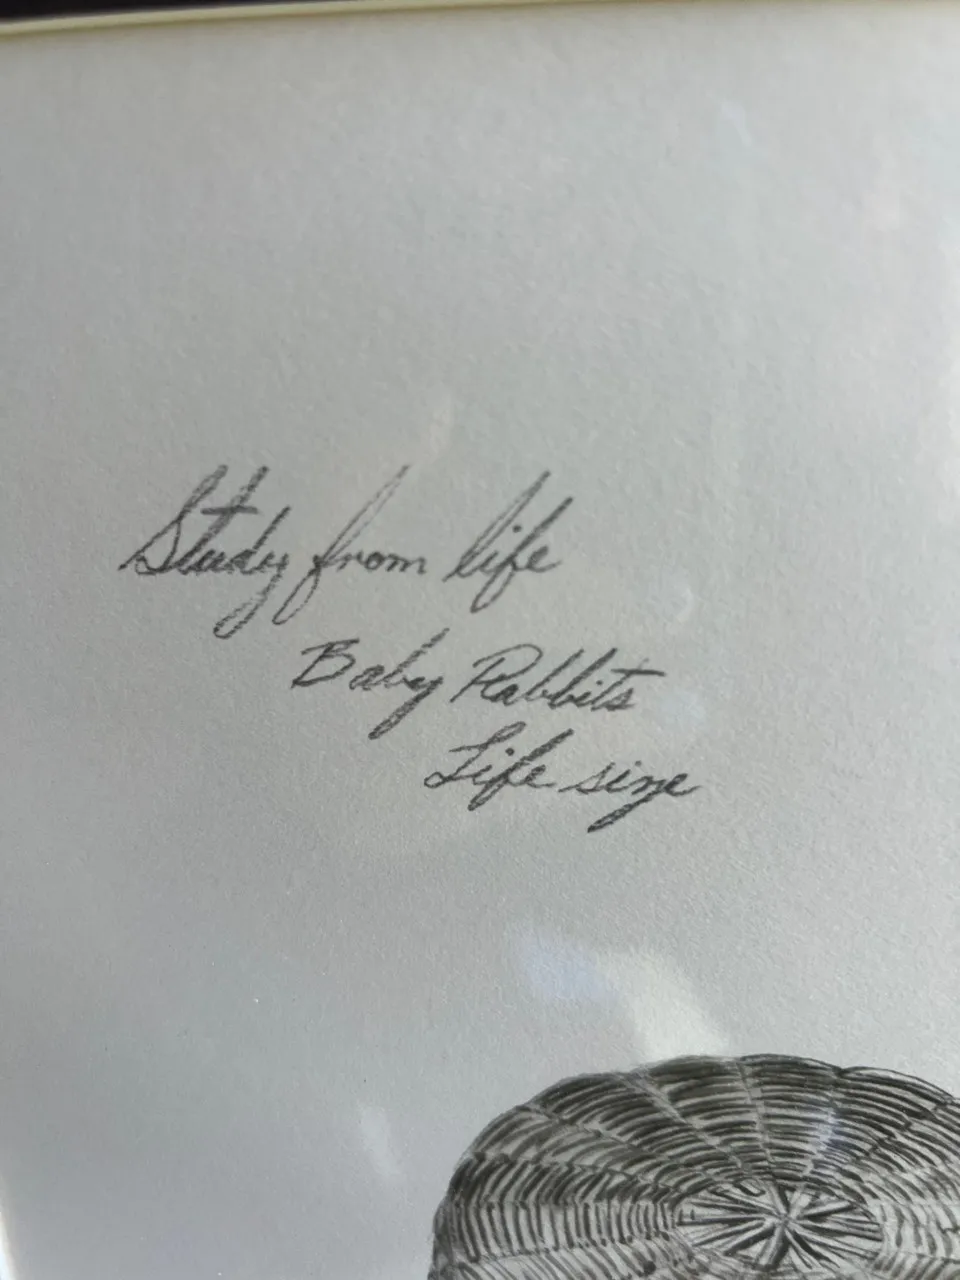 Study from life
Baby Rabbits
Life size